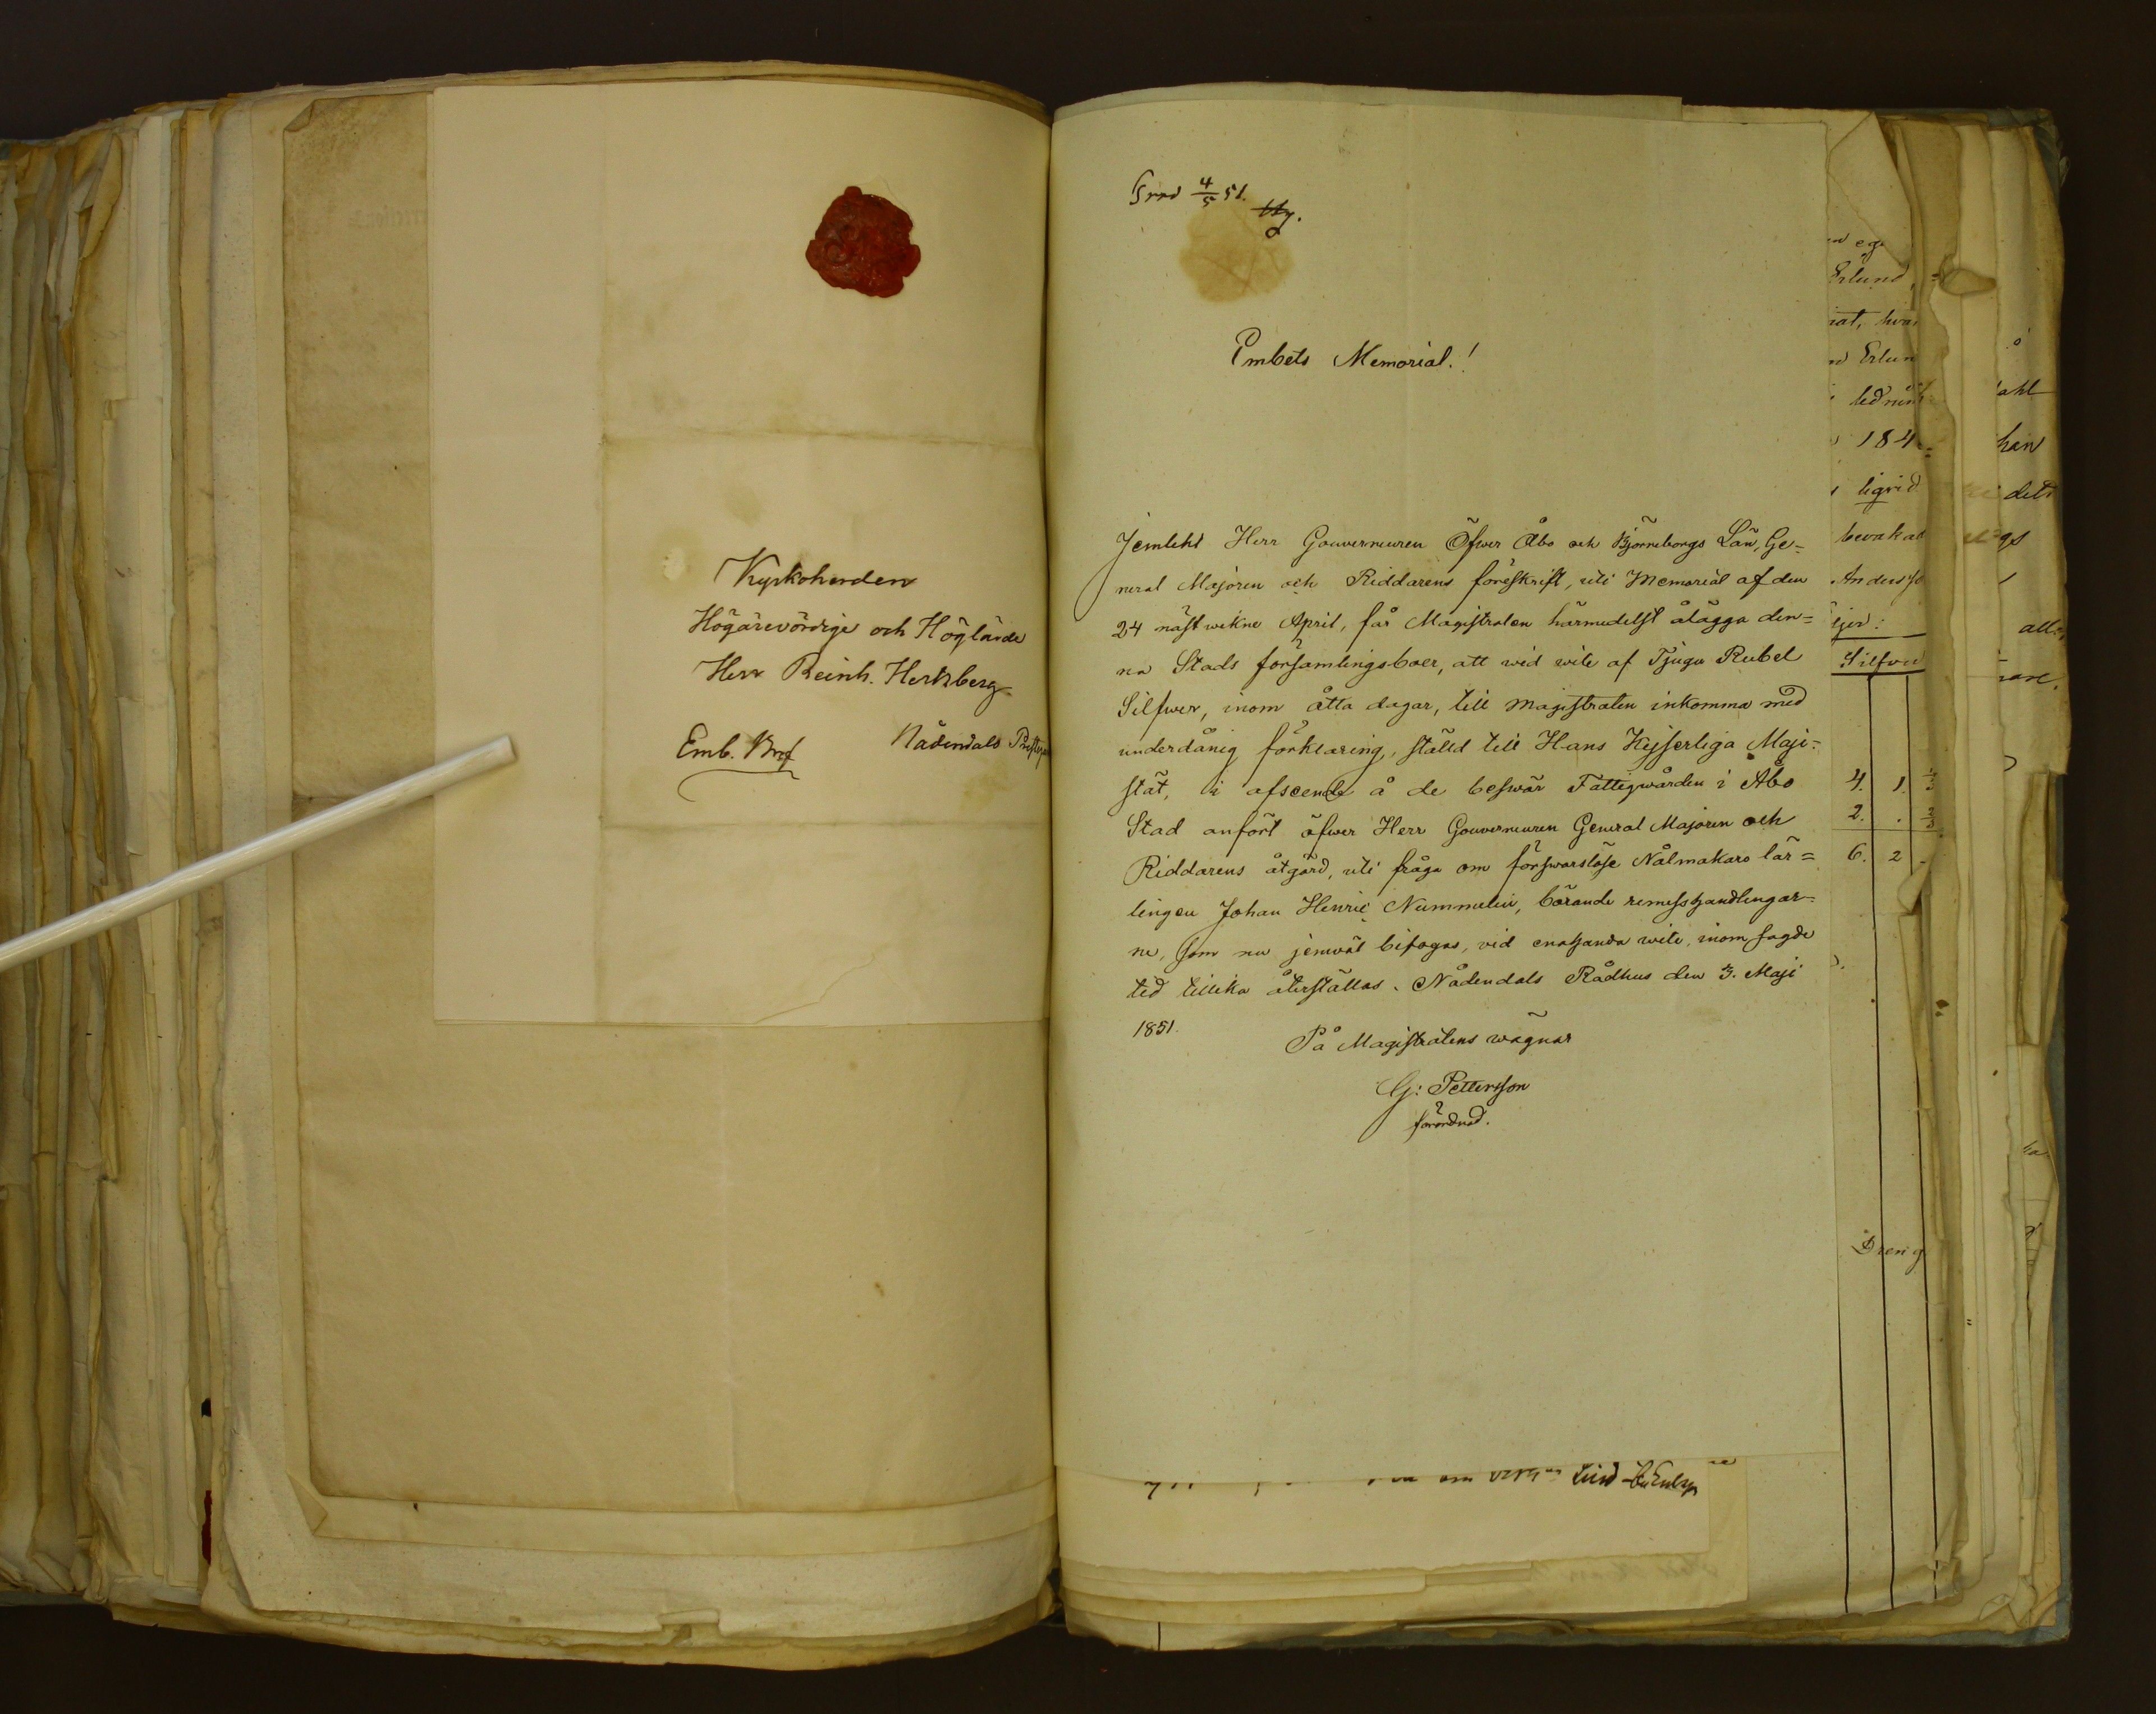 Kyrkoherden
Högärevördige och Höglärde
Herr Reinh. Hertzberg
Emb. Bref
Nådendals
4/5 51.
Embets Memorial.!
Jemlikt Herr Gouverneuren Öfwer Åbo och Björneborgs Län, Ge=
neral Majoren och Riddarens föreskrift, uti Memorial af den
24 nästwekne April, får Magistraten härmedelst ålägga den=
na Stads församlingsboer, att wid wite af Tjugu Rubel
Silfwer, inom åtta dagar, till Magistraten inkomma med
underdånig förklaring, ställd till Hans Kejserliga Maje=
stät, i afseende å de beswär Fattigwården i Åbo
Stad anfört öfwer Herr Gouverneuren General Majoren och
Riddarens åtgärd, uti fråga om förswarslöse Nålmakare lär=
lingen Johan Henric Nummelin, börande remisshandlingar=
ne, som nu jemwäl bifogas, vid enahanda wite, inom sagde
tid tillika återställas. Nådendals Rådhus den 3. Maji
1851.
På Magistratens wägnar
G: Pettersson
förordnad.
Erlund
hva
Erlun
184
bevakad
Anderss
Silfver
4. 1.
2. .
6. 2
Dreng
ahl
han
dets